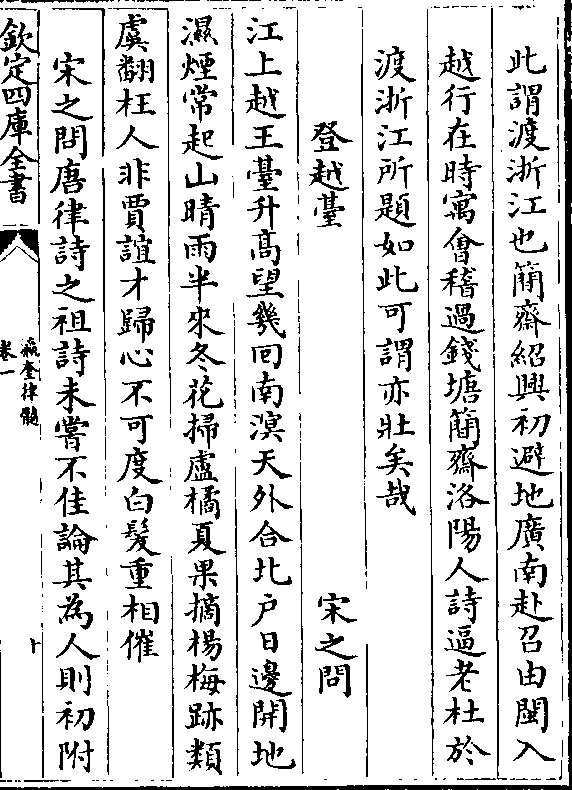 此謂渡浙江也簡齋紹興初避地廣南赴召由閩入
越行在時寓會稽過錢塘簡齋洛陽人詩逼老杜於
渡浙江所題如此可謂亦壯矣哉
登越臺　宋之問
江上越王臺升髙望幾回南溟天外合北户日邊開地
濕煙常起山晴雨半來冬花掃盧橘夏果摘楊梅跡類
虞翻枉人非賈誼才歸心不可度白髮重相催
宋之問唐律詩之祖詩未嘗不佳論其為人則初附
欽定四庫全書
瀛奎律髓
卷一
十